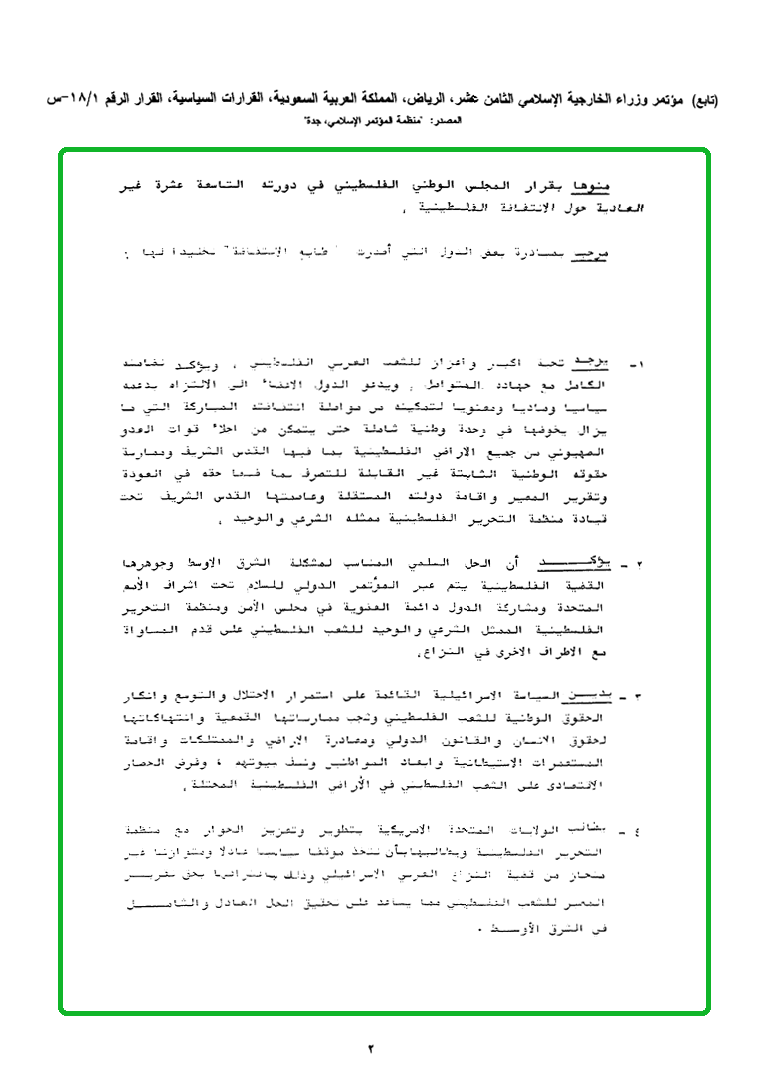 (تابع) مؤتمر وزراء الخارجية الإسلامي الثامن عشر، الرياض، المملكة العربية السعودية، القرارات السياسية، القرار الرقم ١٨/١-س
المصدر: "منظمة المؤتمر الإسلامي، جدة"
منوها بقرار المجلس الوطني الفلسطيني في دورته التاسعة عشرة غير
العادية حول الانتفاضة الفلسطينية ،
بمبادرة بعض الدول التي أصدرت "طابع الإنتفاضة"
١- تحية اكبار واعزاز للشعب العربي الفلسطيني ، ويؤكد تضامنه
الكامل مع جهاده المتواصل ، ويدعو الدول الاعضاء الى الالتزام بدعمه
سياسيا وماديا ومعنويا لتمكينه من مواصلة انتفاضته المباركة التي ما
يزال يخوضها في وحدة وطنية شاملة حتى يتمكن من اجلاء قوات العدو
الصهيوني من جميع الاراضي الفلسطينية بما فيها القدس الشريف وممارسة
حقوقه الوطنية الثابتة غير القابلة للتصرف بما فيها حقه في العودة
وتقرير المصير واقامة دولته المستقلة وعاصمتها القدس الشريف تحت
قيادة منظمة التحرير الفلسطينية ممثله الشرعي والوحيد ،
٢ - يؤكـــد أن الحل السلمي المناسب لمشكلة الشرق الاوسط وجوهرها
القضية الفلسطينية يتم عبر المؤتمر الدولي للسلام تحت اشراف الأمم
المتحدة ومشاركة الدول دائمة العضوية في مجلس الأمن ومنظمة التحرير
الفلسطينية الممثل الشرعي والوحيد للشعب الفلسطيني على قدم المساواة
مع الاطراف الاخرى في النزاع،
٣ - يديـن السياسة الاسرائيلية القائمة على استمرار الاحتلال والتوسع وانكار
الحقوق الوطنية للشعب الفلسطيني ممارساتها القمعية وانتهاكاتها
لحقوق الانسان والقانون الدولي ومصادرة الاراضي والممتلكات واقامة
المستعمرات الاستيطانية وابعاد المواطنين ونسف بيوتهم ، وفرض الحصار
الاقتصادى على الشعب الفلسطيني في الأراضي الفلسطينية المحتلة،
٤ - يطالب الولايات المتحدة الامريكية بتطوير وتعزيز الحوار مع منظمة
التحرير الفلسطينية ويطالبها بأن تتخذ موقفا سياسيا عادلا ومتوازنا غير
منحاز من قضية النزاع العربي الاسرائيلي وذلك باعترافها بحق تقريـر
المصير للشعب الفلسطيني مما يساعد على تحقيق الحل العادل والشامـــل
في الشرق الأوسـط .
٢